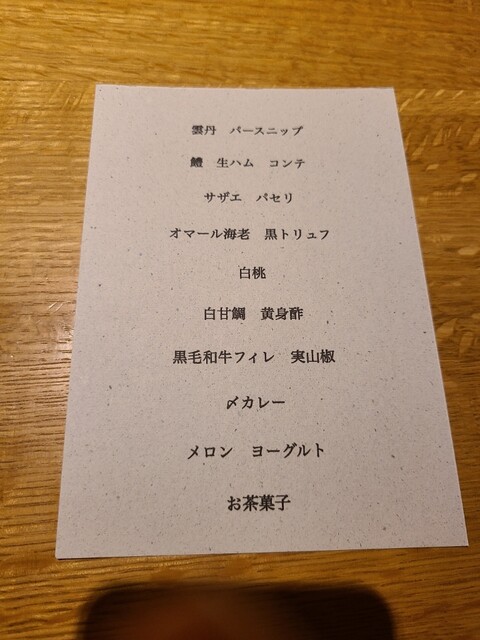 雲丹　パースニップ
鱧　生ハム　コンテ
サザエ　パセリ
オマール海老　黒トリュフ
白桃
白甘鯛　黄身酢
黒毛和牛フィレ　実山椒
〆カレー
メロン　ヨーグルト
お茶菓子